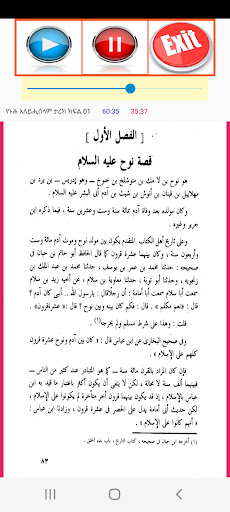 Exit
የኑሕ አለይሒሰላም ታሪክ ክፍል 01 60:35 35:37
[ الفصل الأول ]
قصة نوح عليه السلام
هو نوح بن لا مك بن متوشلخ بن خنوخ ــ وهو إدريس ــ بن يرد بن
مهلاييل بن قينن بن أنوش بن شيث بن آدم أبى البشر عليه السلام .
وكان مولده بعد وفاة آدم بمائة سنة وست وعشرين سنة ، فيما ذكره ابن
جرير وغيره .
وعلى تاريخ أهل الكتاب المتقدم يكون بين مولد نوح وموت آدم مائة وست
وأربعون سنة ، وكان بينهما عشرة قرون كما قال الحافظ أبو حاتم بن حبان فى
صحيحه : حدثنا محمد بن عمر بن يوسف ، حدثنا محمد بن عبد الملك بن
زنجويه ، وحدثنا أبو توبة ، حدثنا معاوية بن سلام ، عن أخيه زيد بن سلام
سمعت أبا سلام سمعت أبا أمامة : أن رجلاقال : يارسول الله .. أنبى كان آدم ؟
قال : «نعم مكلم » . قال : فكم كان بينه وبين نوح ؟ قال : « عشرةقرون» .
قلت : وهذا على شرط مسلم ولم يخرجه(١) .
وفى صحيح البخارى عن ابن عباس قال : « كان بين آدم ونوح عشرة قرون
كلهم على الإسلام » .
فإن كان المراد بالقرن مائة سنة ــ كما هو المتبادر عند كثير من الناس ــ
فبينهما ألف سنة لا محالة ، لكن لا ينفى أن يكون أكثر باعتبار ما قيد به ابن
عباس بالإسلام ، إذ قد يكون بينهما قرون أخر متأخرة لم يكونوا على الإسلام ،
لكن حديث أبى أمامة يدل على الحصر فى عشرة قرون ، وزادنا ابن عباس :
« أنهم كانوا على الإسلام » .
(١) أخرجه ابن حبان فى صحيحه ، كتاب التاريخ ، باب بدء الخلق .
٨٣